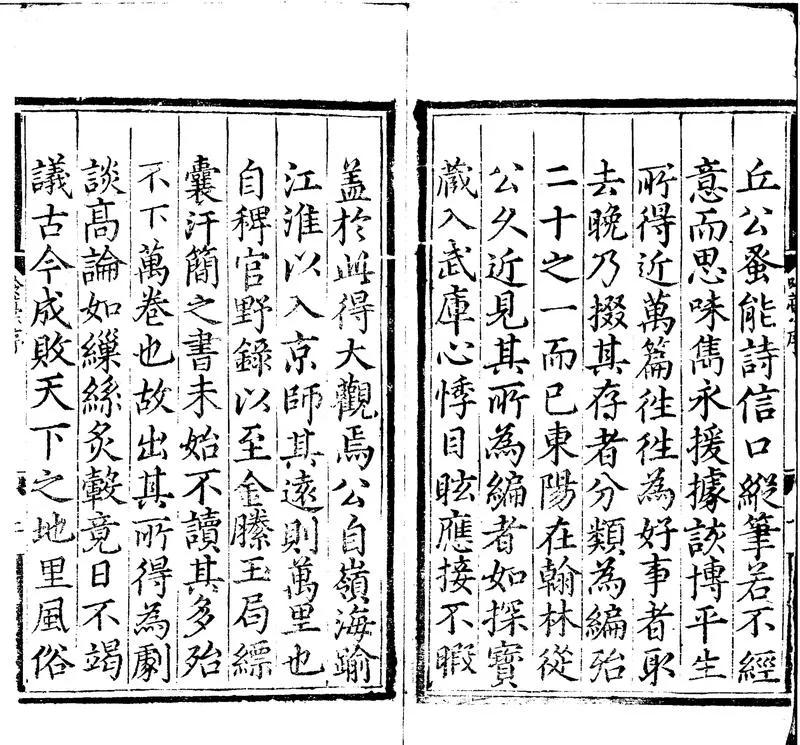 丘公蚤能詩信口縱筆若不經
意而思味雋永援據該博平生
所得近萬篇徃徃為好事者取
去晚乃掇其存者分類為編殆
二十之一而已東陽在翰林從
公久近見其所為編者如探寶
藏入武庫心悸目眩應接不暇
盖於此得大觀焉公自嶺海踰
江淮以入京師其遠則萬里也
自稗官野錄以至金縢玉局縹
囊汗簡之書未始不讀其多殆
不下萬卷也故出其所得為劇
談高論如繅絲炙轂竟日不竭
議古今成敗天下之地里風俗